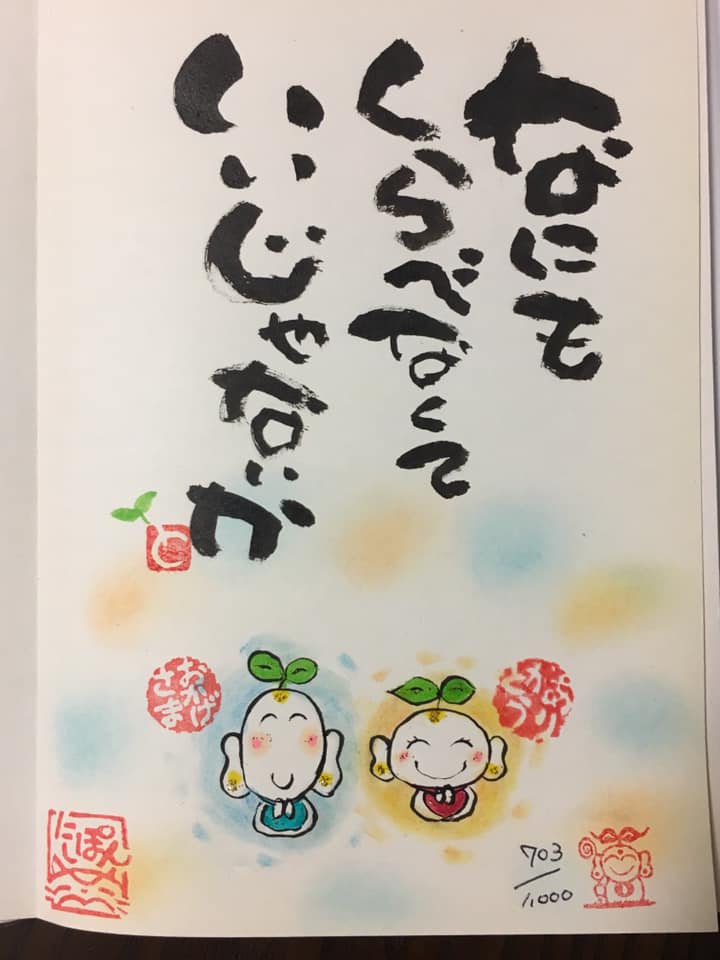 なにも
くらべなくて
いいじゃないか
と
おかげ
さま
あり
がとう
にっぽん
703
/1,000